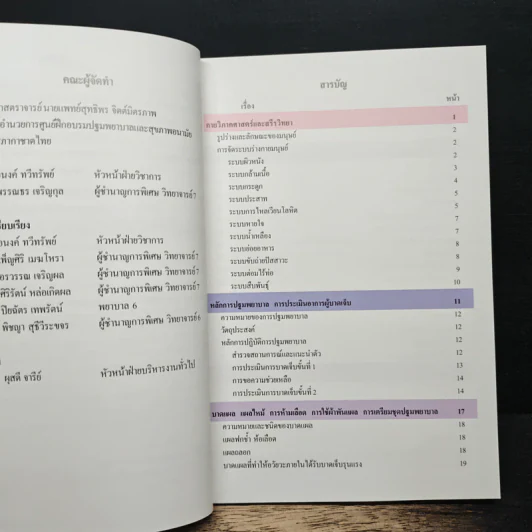 คณะผู้จัดทำ
สตราจารย์ นายแพทย์สุทธิพร จิตต์มิตรภาพ
อำนวยการศูนย์ฝึกอบรมปฐมพยาบาลและสุขภาพอนามัย
ภากาชาดไทย
อนงค์ ทวีทรัพย์ หัวหน้าฝ่ายวิชาการ
พรรณธร เจริญกุล ผู้ชำนาญการพิเศษ วิทยาจารย์ 7
เรียบเรียง
อนงค์ ทวีทรัพย์ หัวหน้าฝ่ายวิชาการ
เพ็ญศิริ เมฆโหรา ผู้ชำนาญการพิเศษ วิทยาจารย์ 7
อรวรรณ เจริญผล ผู้ชำนาญการพิเศษ วิทยาจารย์ 7
ศิริรัตน์ หล่อเกิดผล ผู้ชำนาญการพิเศษ วิทยาจารย์ 7
ปิยฉัตร เทพรัตน์ พยาบาล 6
พิชญา สุธีวีระขจร ผู้ชำนาญการพิเศษ วิทยาจารย์ 6
ผุสดี จารีย์ หัวหน้าฝ่ายบริหารงานทั่วไป
สารบัญ
เรื่อง หน้า
กายวิภาคศาสตร์และสรีรวิทยา 1
รูปร่างและลักษณะของมนุษย์ 2
การจัดระบบร่างกายมนุษย์ 2
ระบบผิวหนัง 2
ระบบกล้ามเนื้อ 3
ระบบกระดูก 4
ระบบประสาท 5
ระบบการไหลเวียนโลหิต 5
ระบบหายใจ 7
ระบบน้ำเหลือง 7
ระบบย่อยอาหาร 8
ระบบขับถ่ายปัสสาวะ 8
ระบบต่อมไร้ท่อ 9
ระบบสืบพันธุ์ 10
หลักการปฐมพยาบาล การประเมินอาการผู้บาดเจ็บ 11
ความหมายของการปฐมพยาบาล 12
วัตถุประสงค์ 12
หลักการปฏิบัติการปฐมพยาบาล 12
สำรวจสถานการณ์และแนะนำตัว 12
การประเมินการบาดเจ็บขั้นที่ 1 13
การขอความช่วยเหลือ 14
การประเมินการบาดเจ็บขั้นที่ 2 14
บาดแผล แผลไหม้ การห้ามเลือด การใช้ผ้าพันแผล การเตรียมชุดปฐมพยาบาล 17
ความหมายและชนิดของบาดแผล 18
แผลฟกช้ำ ห้อเลือด 18
แผลถลอก 18
บาดแผลที่ทำให้อวัยวะภายในได้รับบาดเจ็บรุนแรง 19